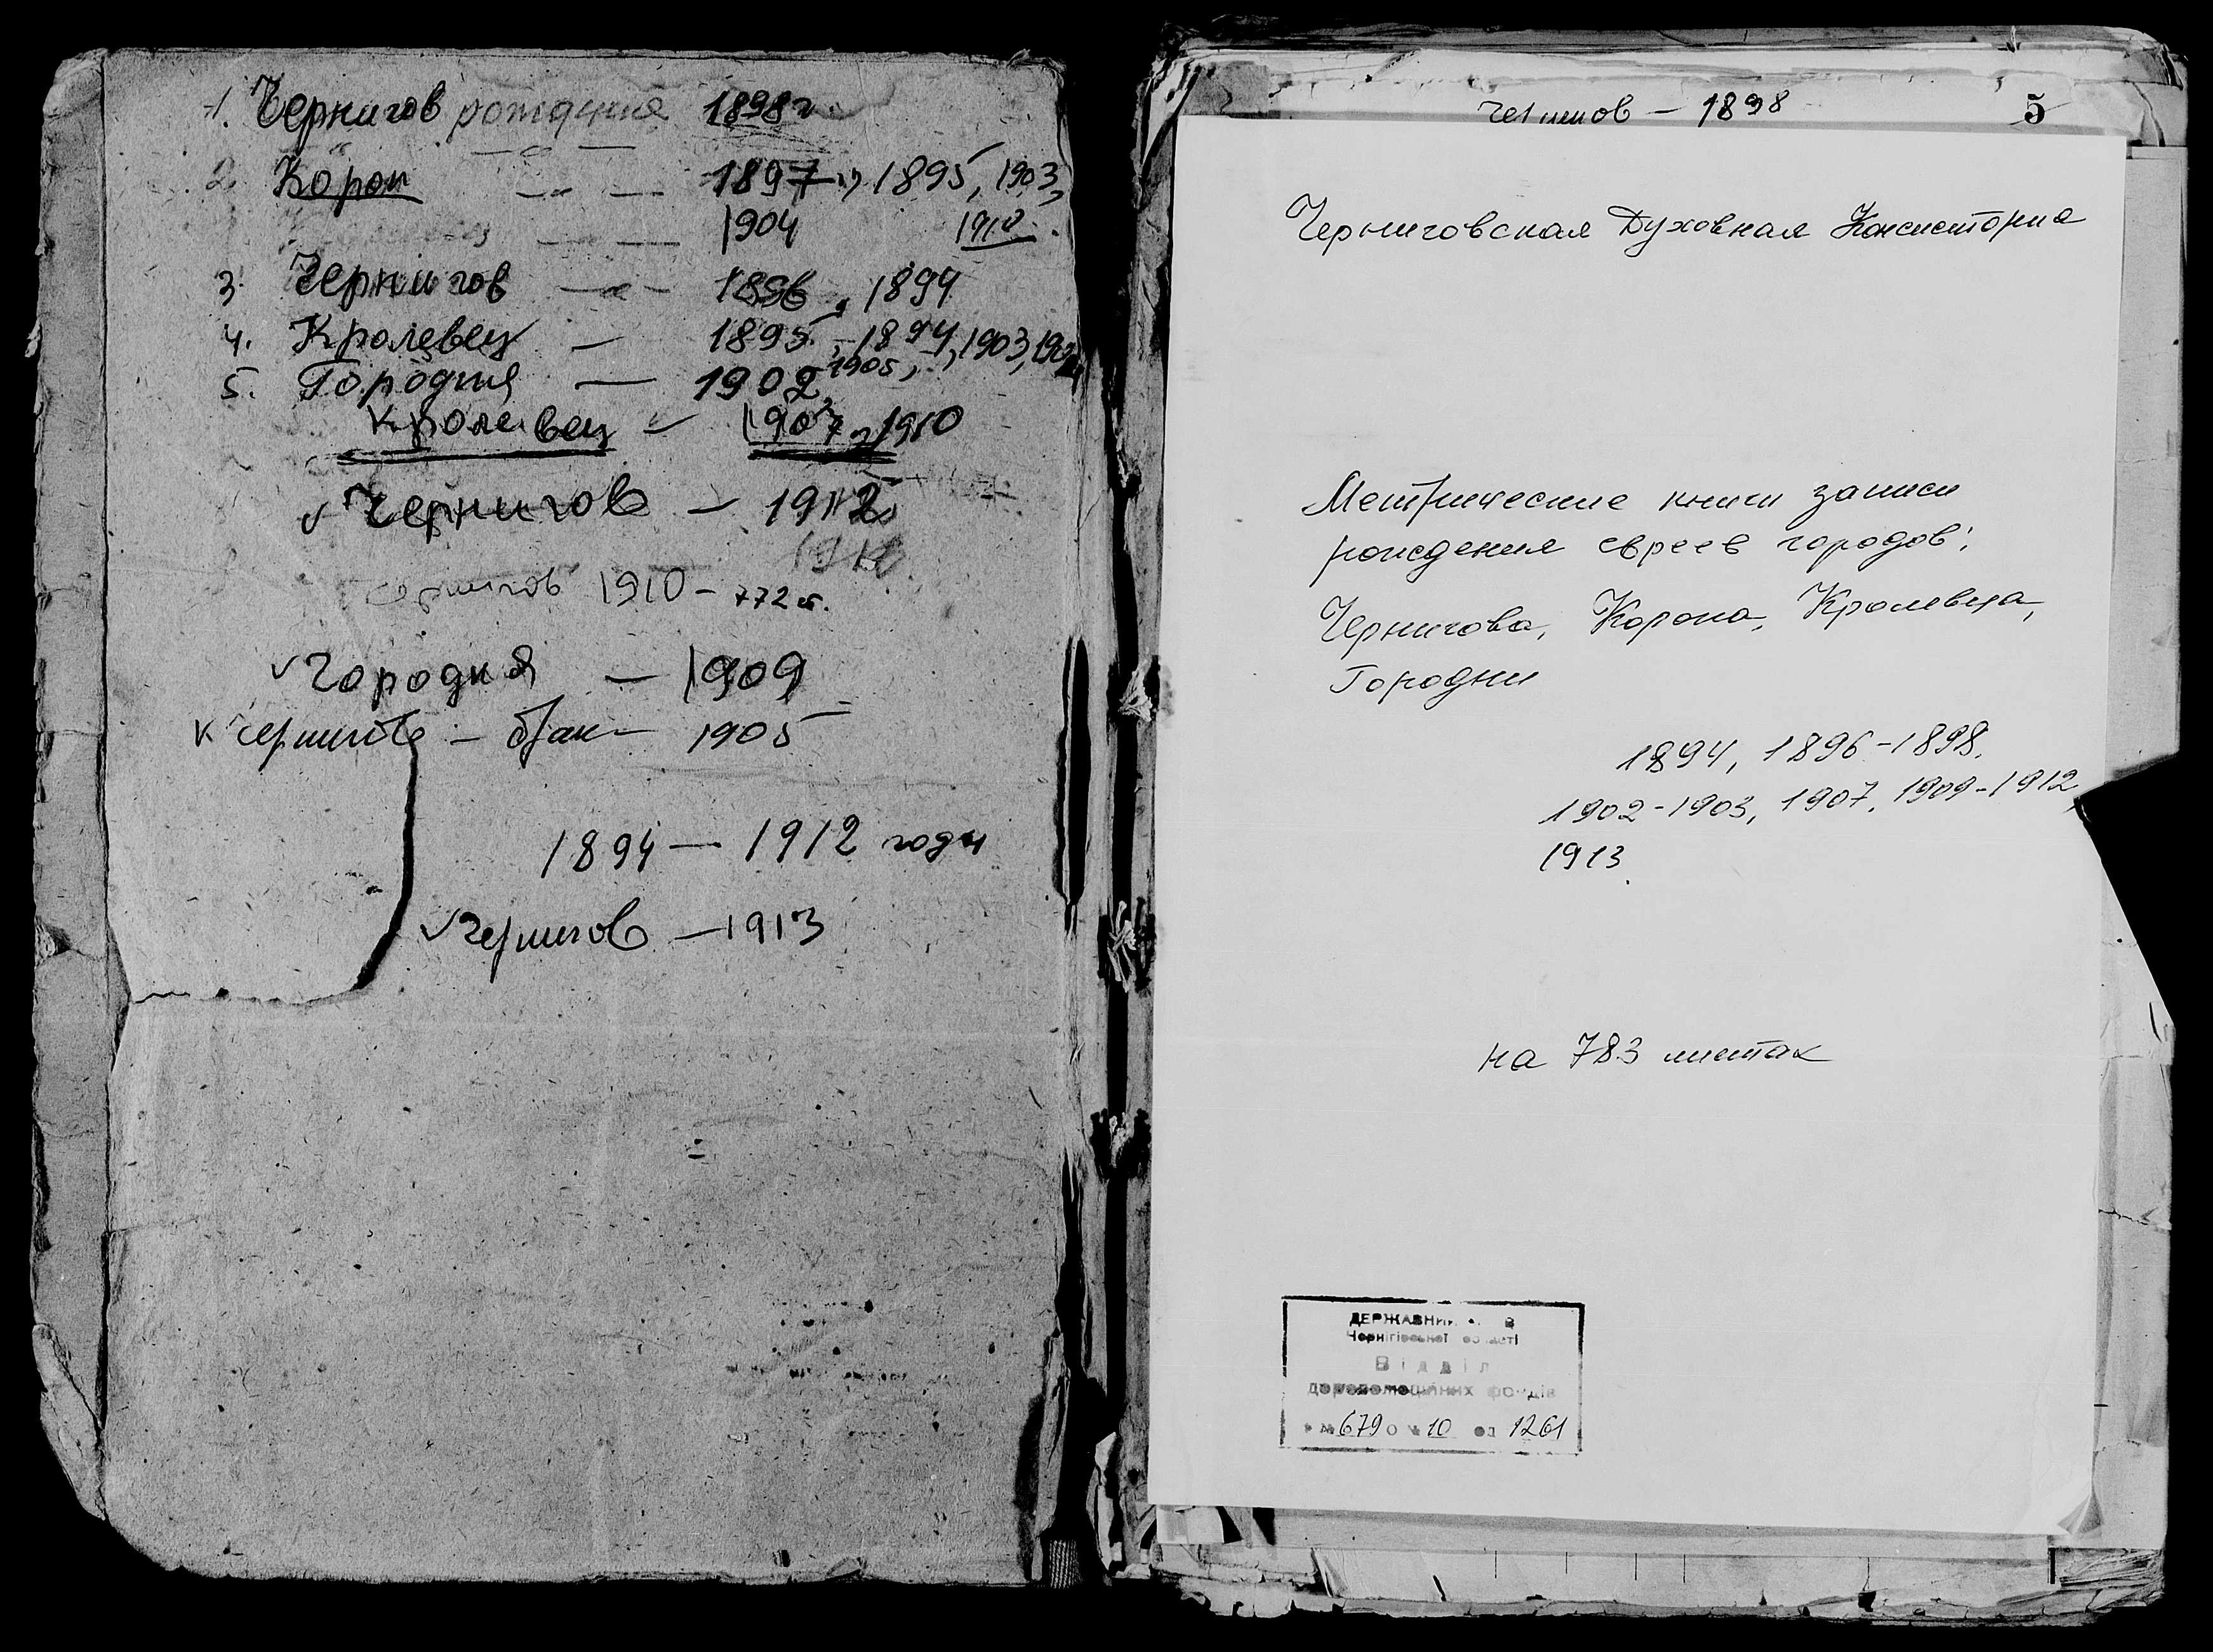 1. Чернигов рождение 1898 г
2. Короп — " — 1897, 1895, 1903,
1904 1910.
3. Чернигов — " — 1896, 1894
4. Кролевец — 1895, 1894, 1903,
1905,
5. Городня — 1902
Кролевец — 1907, 1910
Чернигов — 1912
Чернигов 1910 – 772 л.
Городня — 1909
к Чернигов – брак – 1905
1894 — 1912 годы
Чернигов — 1913
Чернигов – 1898
5
Черниговская Духовная Консистория
Метрические книги записи
рождения евреев городов:
Чернигова, Коропа, Кролевца,
Городни
1894, 1896-1898,
1902-1903, 1907, 1909-1912,
1913.
на 783 листах
ДЕРЖАВНИЙ
Чернігівської області
Відділ
дореволюційних фондів
679 о 10 од 1261